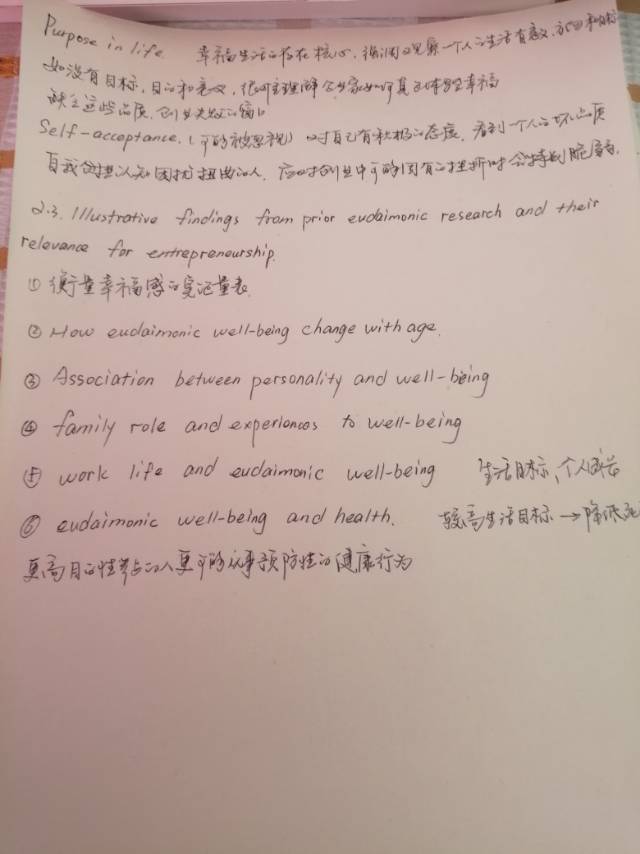 Purpose in life 幸福生活的存在核心，强调观察一个人的生活有意义，方向和目标
如没有目标，目的和意义，很难理解企业家如何真正体验幸福
缺乏这些品质，创业失败的窗口
Self-acceptance.（可能被忽视）对自己有积极的态度，看到一个人的坏品质
自我 认知困扰扭曲的人，应对创业中可能固有的挫折时会特别脆弱.
2.3. Illustrative findings from prior eudaimonic research and their
relevance for entrepreneurship.
① 衡量幸福感的 量表.
② How eudaimonic well-being change with age.
③ Association between personality and well-being
④ family role and experiences to well-being
⑤ work life and eudaimonic well-being 生活目标，个人成长
⑥ eudaimonic well-being and health. 较高生活目标→降低死
更高目的性 的人更可能从事预防性的健康行为